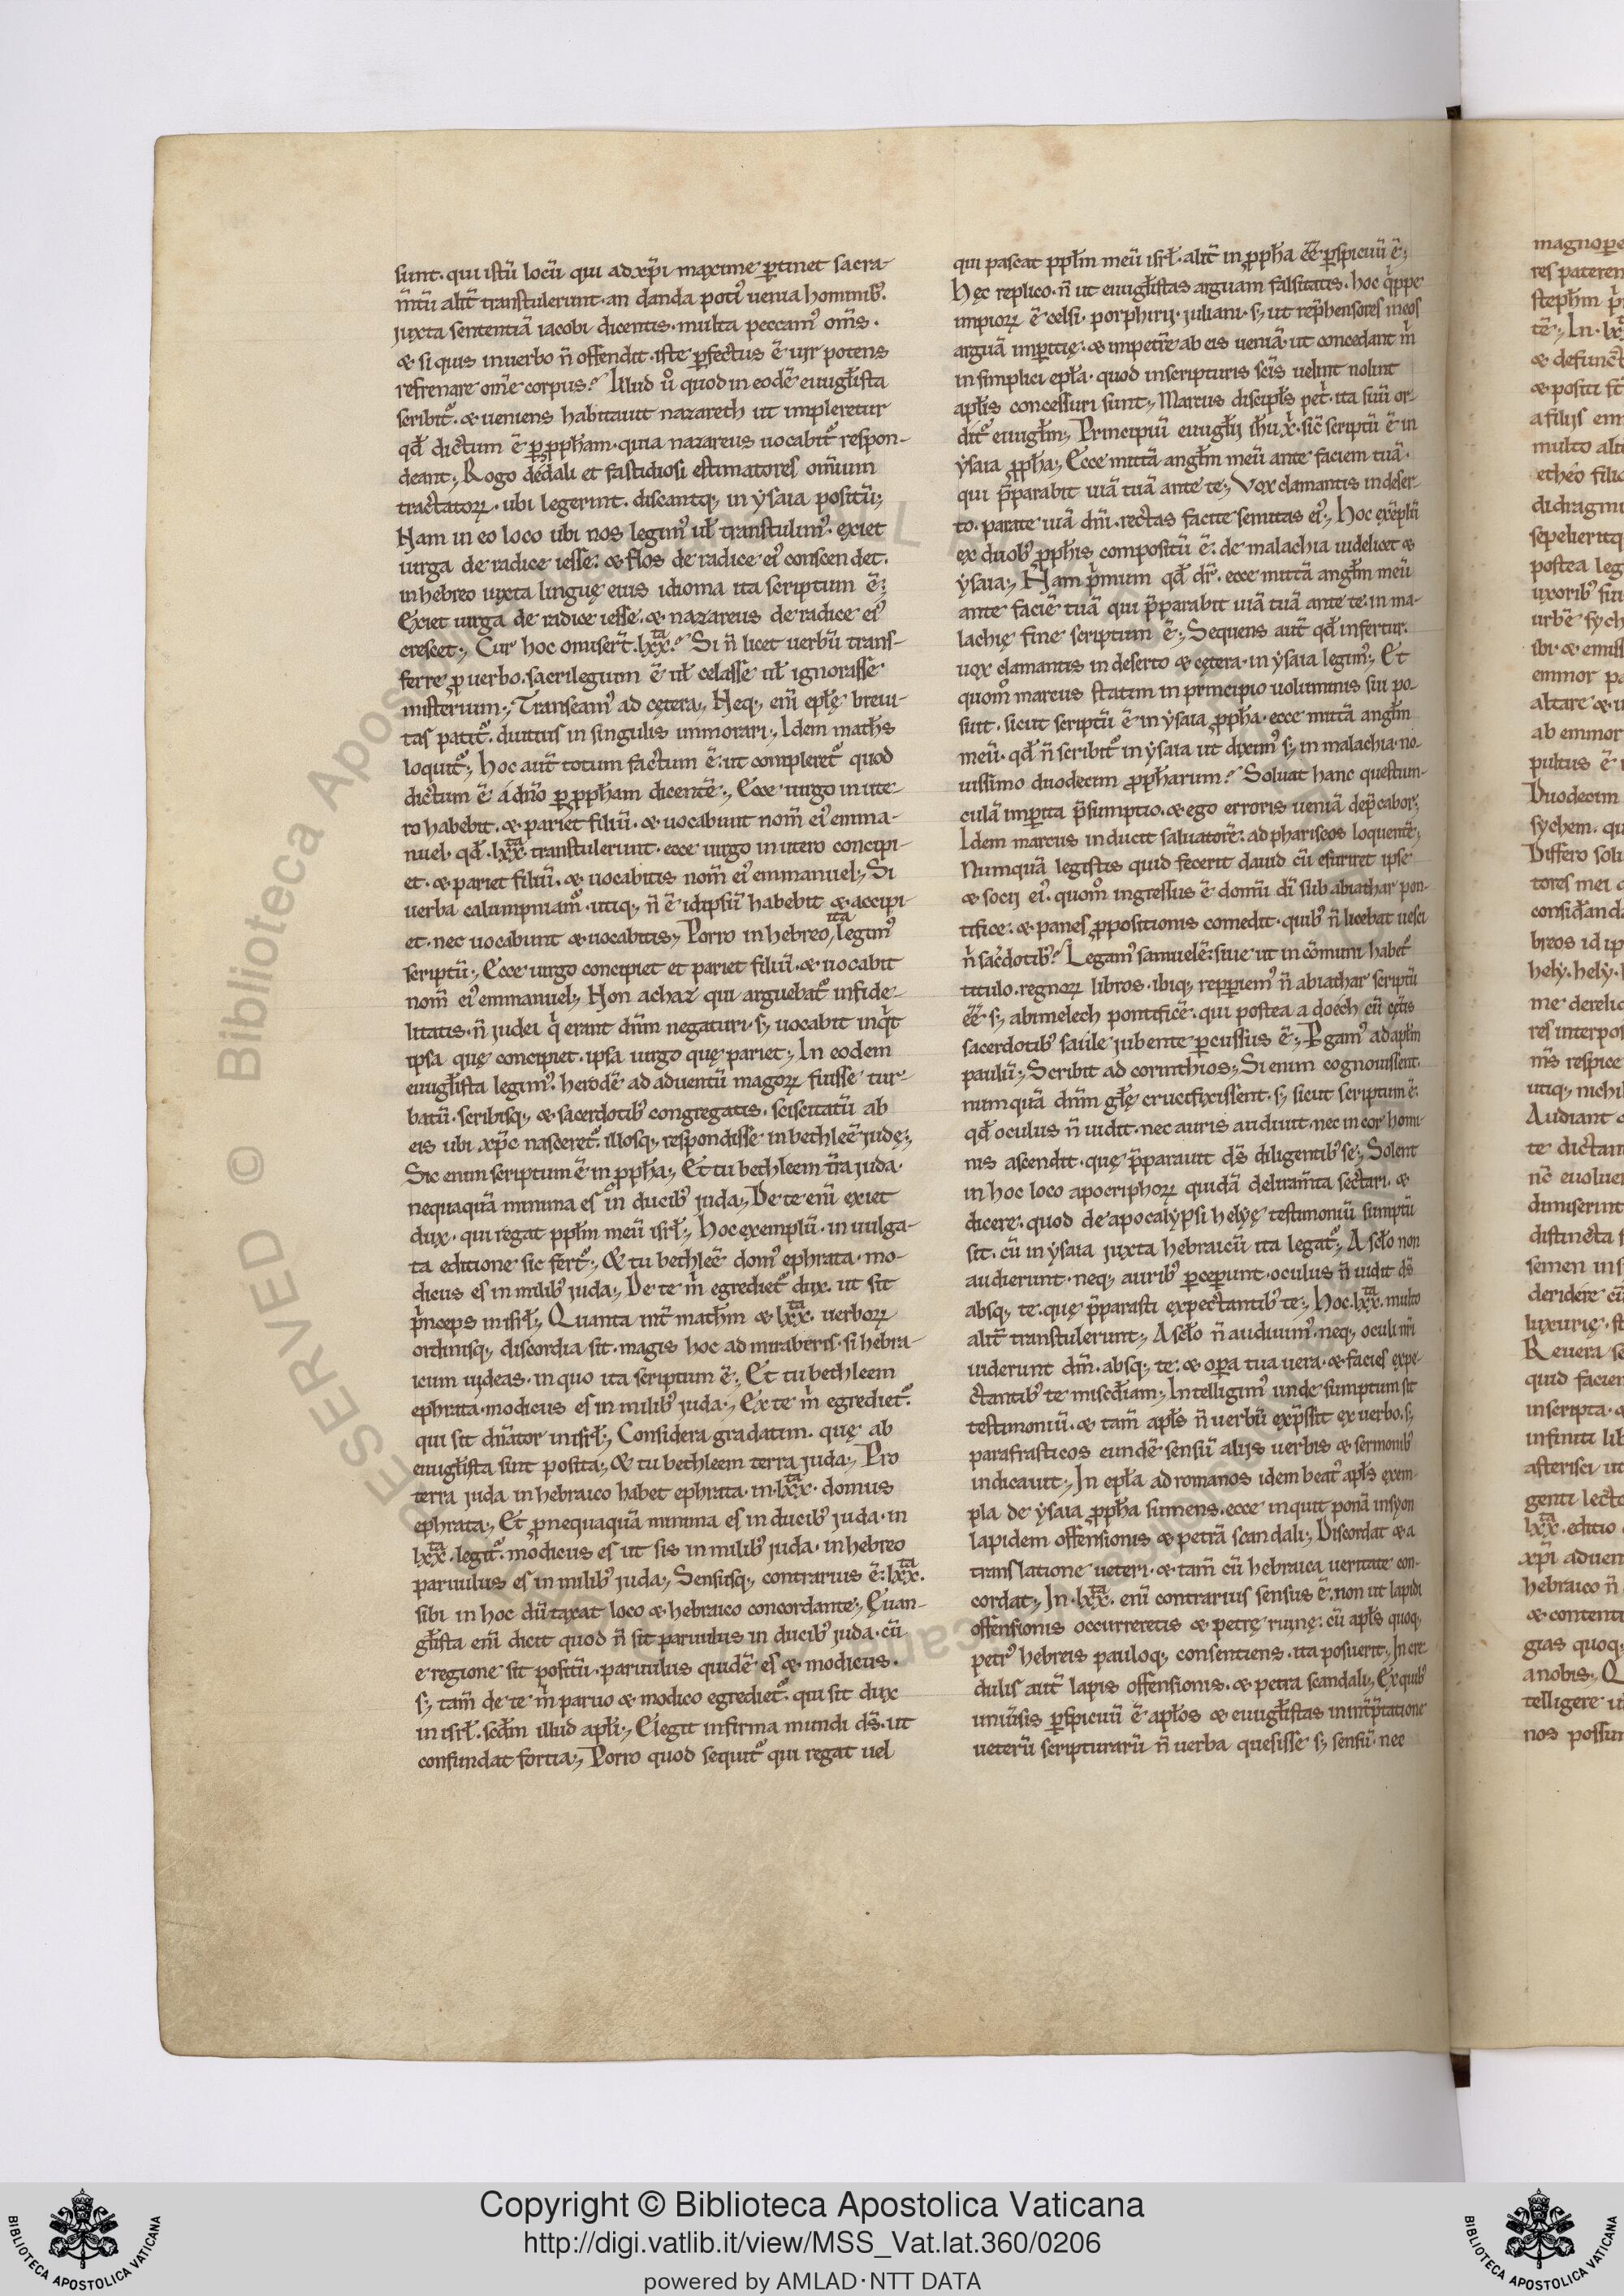 sunt. qui istū locū qui ad xp̄i maxime ꝑtinet sacra-
m̄tū alit̄ transtulerunt. an danda potiꝰ uenia hominibꝰ.
juxta sententiā iacobi dicentis. multa peccamꝰ om̄s.
& si quis in uerbo n̄ offendit. iste ꝑfectus ē uir potens
refrenare om̄e corpus? Illud ů quod in eodē euuḡlista
scribit᷑. & ueniens habitauit nazareth ut impleretur
qđ dictum ē ꝑ ꝓpħam. quia nazareus uocabit᷑ respon-
deant; Rogo dédali et fastidiosi estimatores om̄ium
tractatoꝝ. ubi legerint. discantq; in ẏsaia positū;
Nam in eo loco ubi nos legimꝰ uł transtulimꝰ. exiet
uirga de radice iesse. & flos de radice eiꝰ conscendet.
in hebreo iuxta linguę eius idioma ita scriptum ē;
Exiet uirga de radice iesse. & nazareus de radice eiꝰ
crescet; Cur hoc omiser̄t. lxx̄ͭͣ? Si n̄ licet uerbū trans-
ferre ꝓ uerbo. sacrilegum ē uł celasse uł ignorasse
misterium; Transeamꝰ ad cętera; Neq; em̄ epłę breui-
tas patit᷑. diutius in singulis immorari; Idem matħs
loquit᷑; hoc aut̄ totum factum ē. ut compleret᷑ quod
dictum ē á dn̄o ꝑ ꝓpħam dicentē; Ecce uirgo in ute-
ro habebit. & pariet filiū. & uocabunt nom̄ eiꝰ emma-
nuel. qđ. lxx̄ͭͣ transtulerunt. ecce uirgo in utero concipi-
et. & pariet filiū. & uocabitis nom̄ eiꝰ emmanuel; Si
uerba calumpniam᷑. utiq; n̄ ē idipsū habebit & accipi-
et. nec uocabunt & uocabitis; Porro in hebreo ita legimꝰ
scriptū; Ecce uirgo concipiet et pariet filiū. & uocabit
nom̄ eiꝰ emmanuel; Non achaz qui arguebat᷑ infide-
litatis. n̄ judei q̇ erant dn̄m negaturi. s; uocabit inq̇t
ipsa quę concipiet. ipsa uirgo quę pariet; In eodem
euuḡlista legimꝰ. herodē ad aduentū magoꝝ fuisse tur-
batū. scribisq; & sacerdotibꝰ congregatis. sciscitatū ab
eis ubi xp̄c nasceret᷑. illosq; respondisse in bethleē judę;
Sic enim scriptum ē in ꝓpħa; Et tu bethleem t̄ra juda.
nequaquā minima es in ducibꝰ juda; De te em̄ exiet
dux. qui regat ppłm meū isrł; hoc exemplū. in uulga-
ta editione sic fert᷑; & tu bethleē domꝰ ephrata. mo-
dicus es in milibꝰ juda; De te ṁ egrediet᷑ dux. ut sit
ṗnceps in isrł; Quanta int̄ matħm & lxx̄ͭͣ. uerboꝝ
ordinisq; discordia sit. magis hoc ad miraberis. si hebra-
icum uideas. in quo ita scriptum ē; Et tu bethleem
ephrata. modicus es in milibꝰ juda; Ex te ṁ egrediet᷑.
qui sit dn̄ator in isrł; Considera gradatim. quę ab
euuḡlista sint posita; & tu bethleem terra juda; Pro
terra juda in hebraico habet ephrata. in. lxx̄ͭͣ. domus
ephrata; Et ꝓ nequaquā minima es in ducibꝰ juda. in
lxx̄ͭͣ. legit᷑. modicus es ut sis in milibꝰ juda. in hebreo
paruulus es in milibꝰ juda; Sensusq; contrarius ē. lxx̄ͭͣ.
sibi in hoc dūtaxat loco & hebraico concordante; Euan-
głista em̄ dicit quod n̄ sit paruulus in ducibꝰ juda. cū
e regione sit positū. paruulus quidē es & modicus.
s; tam̄ de te ṁ paruo & modico egrediet᷑. qui sit dux
in isrł. scđm illud apłi; Elegit infirma mundi d̄s. ut
confundat fortia; Porro quod sequit᷑ qui regat uel
qui pascat ppłm meū isrł. alit̄ in ꝓpħa ēē ꝑspicuū ē;
hęc replico. n̄ ut euuḡlistas arguam falsitatis. hoc q̇ppe
impioꝝ ē celsi. porphirij. juliani. s; ut rep̄hensores meos
arguā imꝑitię. & impetrē ab eis ueniā. ut concedant ṁ
in simplici epła. quod in scripturis sc̄is uelint nolint
apłis concessuri sunt; Marcus discipłs pet̄. ita suū or-
dit᷑ euuḡlm; Principiū euuḡlij iħu x̄. sic̄ scriptū ē in
ẏsaia ꝓpħa; Ecce mittā angłm meū ante faciem tuā.
qui p̄parabit uiā tuā ante te; Vox clamantis in deser-
to. parate uiā dn̄i. rectas facite semitas eiꝰ; hoc exēplū
ex duobꝰ ꝓpħis compositū ē. de malachia uidelicet &
ẏsaia; Nam ṗmum qđ dr̄. ecce mittā angłm meū
ante faciē tuā qui p̄parabit uiā tuā ante te. in ma-
lachię fine scriptum ē; Sequens aut̄ qđ infertur.
uox clamantis in deserto & cętera. in ẏsaia legimꝰ; Et
quom̊ marcus statim in principio uoluminis sui po-
suit. sicut scriptū ē in ẏsaia ꝓpħa. ecce mittā angłm
meū. qđ n̄ scribit᷑ in ẏsaia ut diximꝰ s; in malachia. no-
uissimo duodecim ꝓpħarum? Soluat hanc questiun-
culā imꝑita p̄sumptio. & ego erroris ueniā dep̄cabor;
Idem marcus inducit saluatorē. ad phariseos loquentē;
Numquā legistis quid fecerit dauid cū esuriret ipse
& socij eiꝰ. quom̊ ingressus ē domū dī sub abiathar pon-
tifice. & panes ꝓpositionis comedit. quibꝰ n̄ licebat uesci
n̄ sac̄dotibꝰ? Legamꝰ samuelē. siue ut in cōmuni habet᷑
titulo. regnoꝝ libros. ibiq; repꝑiemꝰ n̄ abiathar scriptū
ēē s; abimelech pontificē. qui postea a doéch cū cęt̄is
sacerdotibꝰ saúle jubente ꝑcussus ē; Ꝑgamꝰ ad apłm
paulū; Scribit ad corinthios; Si enim cognouissent.
numquā dn̄m gł̄ę crucifixissent. s; sicut scriptum ē.
qđ oculus n̄ uidit. nec auris audiuit. nec in cor homi-
nis ascendit. quę p̄parauit d̄s diligentibꝰ se; Solent
in hoc loco apocriphoꝝ quidā deliram̄ta sectari. &
dicere. quod de apocalẏpsi helẏę testimoniū sumptū
sit. cū in ẏsaia juxta hebraicū ita legat᷑; A scło non
audierunt. neq; auribꝰ ꝑceꝑunt. oculus n̄ uidit d̄s
absq; te. quę p̄parasti expectantibꝰ te; hoc. lxx̄ͭͣ. multo
alit̄ transtulerunt; A scło n̄ audiuimꝰ. neq; oculi nr̄i
uiderunt dm̄. absq; te. & oꝑa tua uera. & facies expe-
ctantibꝰ te mis̄c̄diam; Intelligimꝰ unde sumptum sit
testimoniū. & tam̄ apłs n̄ uerbū exp̄ssit ex uerbo. s;
parafrasticos eundē sensū alijs uerbis & sermonibꝰ
indicauit; In epła ad romanos idem beatꝰ apłs exem-
pla de ẏsaia ꝓpħa sumens. ecce inquit ponā in syon
lapidem offensionis & petrā scandali; Discordat & a
translatione ueteri. & tam̄ cū hebraica ueritate con-
cordat; In. lxx̄ͭͣ. em̄ contrarius sensus ē. non ut lapidi
offensionis occurreretis & petrę ruinę. cū apłs quoq;
petrꝰ hebreis pauloq; consentiens. ita posuerit; In cre
dulis aut̄ lapis offensionis. & petra scandali; Ex quibꝰ
uniūsis ꝑspicuū ē apłos & euuḡlistas in int̄p̄tatione
ueterū scripturarū n̄ uerba quesisse s; sensū. nec
magnope
res pateren
stepħm
& defunct
& positi
a filijs em
multo alit
etheo filio
didragm
sepelieritq
postea leg
uxoribꝰ sui
urbē sych
ibi. & emiss
emmor pa
altare
ab emmor
pultus ē
Duodecim
sychem. qu
Differo solu
tores mei
breos id ip
helẏ. helẏ.
me derelic
res interpos
m̄s respice
utiq; nichil
Audiant
te dictam
nc̄ euoluer
dimiserint
distincta
semen in
deridere cū
luxurię.
Reuera
quid facien
inscripta.
infiniti lib
asterisci ut
genti lect
lxx̄ͭͣ. editio
xp̄i aduen
hebraico n̄
& contenti
gias quoq;
a nobis.
telligere
nos possum
RESERVED © Biblioteca Apostolica Vaticana
Copyright © Biblioteca Apostolica Vaticana
http://digi.vatlib.it/view/MSS_Vat.lat.360/0206
powered by AMLAD·NTT DATA
BIBLIOTECA APOSTOLICA VATICANA
BIBLIOTECA APOSTOLICA VATICANA